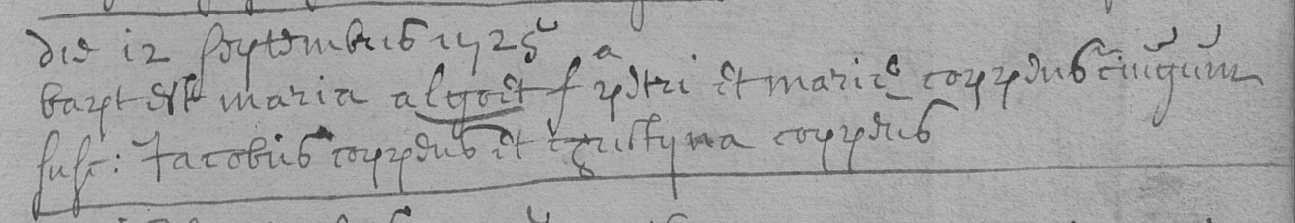 die 12 septembris 1725
bapt est maria algoet f^a petri et marie coppens coniugum
susc: Jacobus coppens et christyna coppens